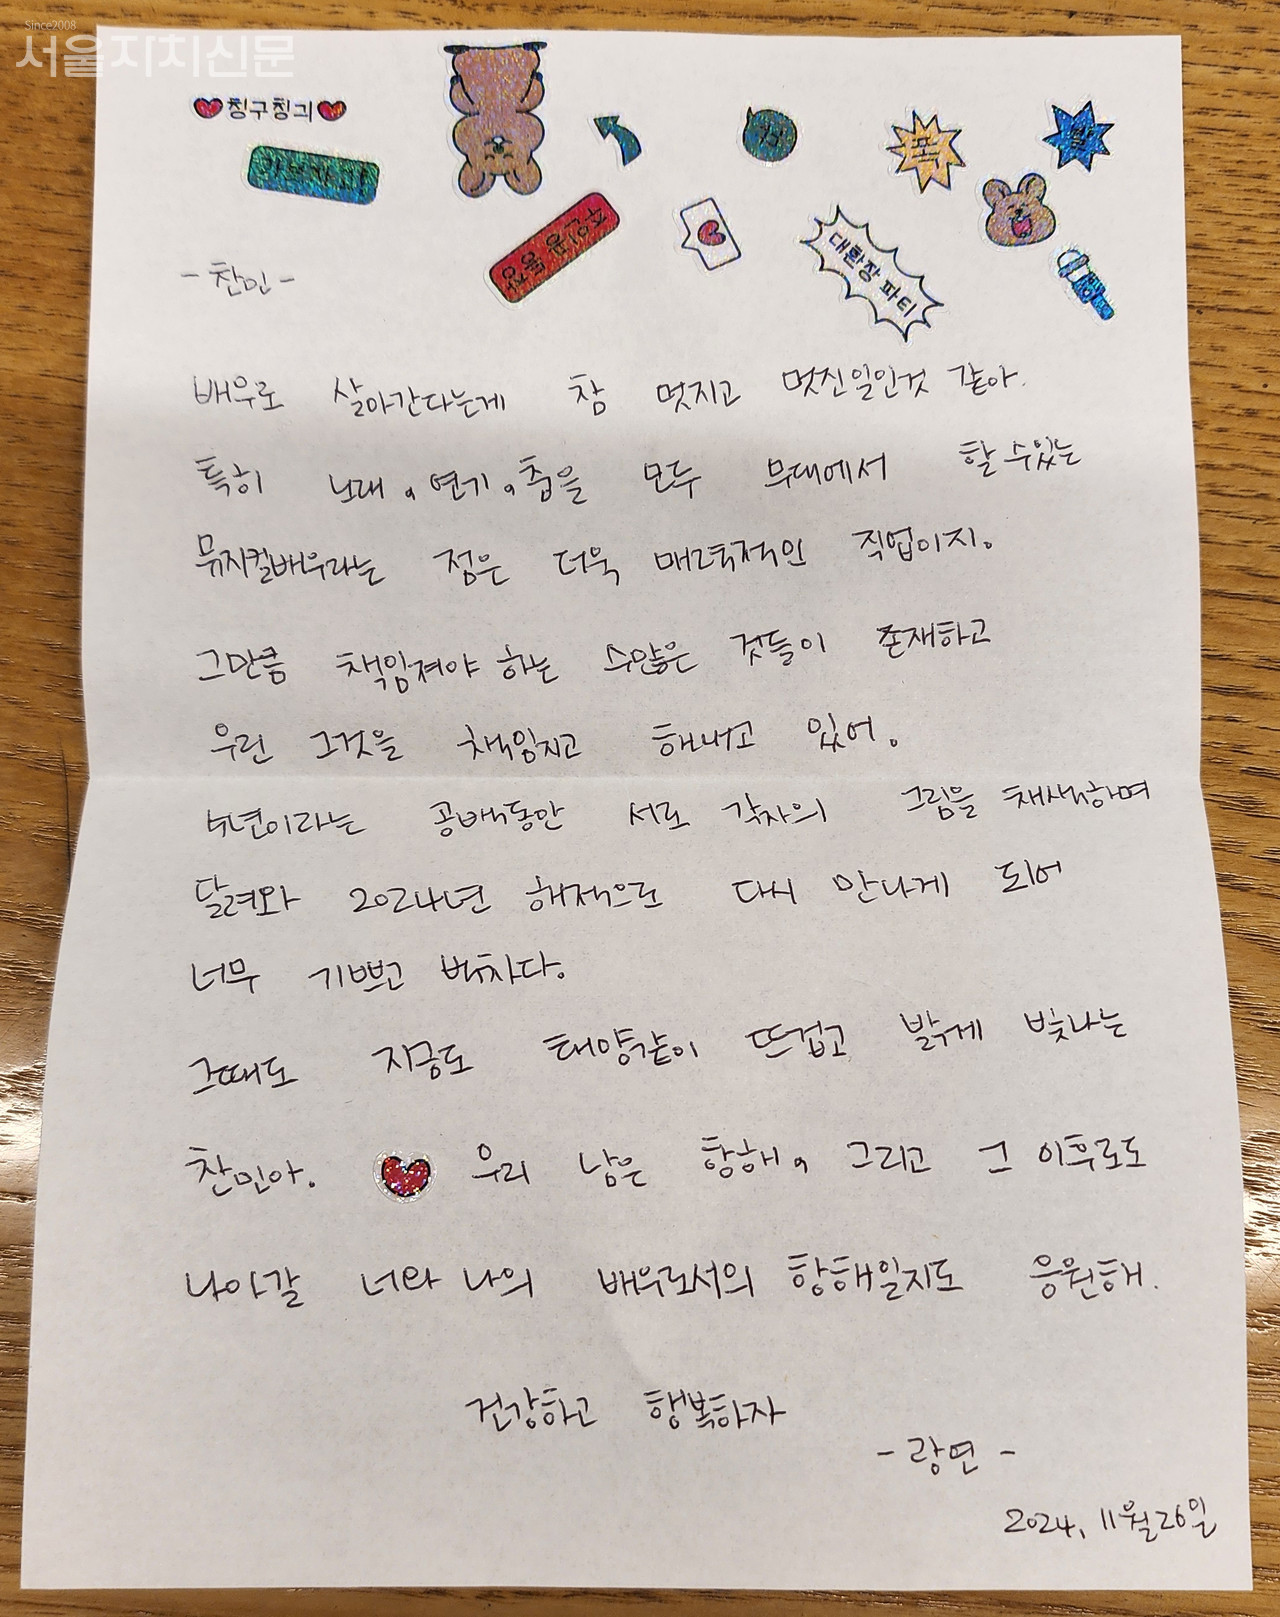 Since2008
서울자치신문
칭구칭긔
가보자고!
주인공 등장
대환장 파티
폭
발
- 찬민 -
배우로 살아간다는게 참 멋지고 멋진일인것 같아.
특히 노래, 연기, 춤을 모두 무대에서 할 수있는
뮤지컬배우라는 점은 더욱 매력적인 직업이지.
그만큼 책임져야 하는 수많은 것들이 존재하고
우린 그것을 책임지고 해내고 있어.
4년이라는 공백동안 서로 각자의 그림을 채색하며
달려와 2024년 해적으로 다시 만나게 되어
너무 기쁘고 벅차다.
그때도 지금도 태양같이 뜨겁고 밝게 빛나는
찬민아. 우리 남은 항해, 그리고 그 이후로도
나아갈 너와 나의 배우로서의 항해일지도 응원해.
건강하고 행복하자
- 광연 -
2024. 11월 26일